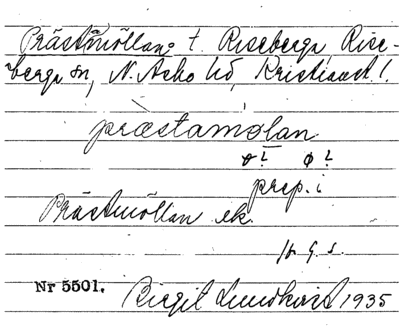 Prästmöllan t. Riseberga, Rise-
berga sn, N. Åsbo hd, Kristianst. l.
præstamølan
ø? ø?
prep. i
Prästmöllan ek.
Nr 5501. Birgit Lundkvist 1935